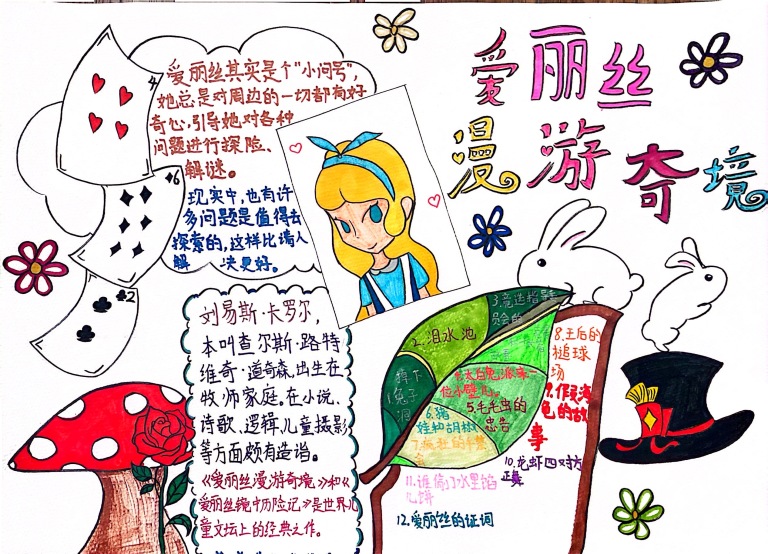 爱丽丝
漫游奇境
爱丽丝其实是个"小问号",
她总是对周边的一切都有好
奇心,引导她对各种
问题进行探险、
解谜。
现实中,也有许
多问题是值得去
探索的,这样比请人
解 决更好。
4
6
2
刘易斯·卡罗尔,
本叫查尔斯·路特
维奇·道奇森,出生在
牧师家庭,在小说、
诗歌、逻辑、儿童摄影
等方面颇有造诣。
《爱丽丝漫游奇境》和《
爱丽丝镜中历险记》是世界儿
童文坛上的经典之作。
掉下
1兔子
洞
2.泪水池
3.竞选指导
员会的
4.大白兔派来一
位小壁儿
5.毛毛虫的
忠告
6.猪
娃和胡椒
7.疯狂的午茶
会
8.王后的
槌球
场
9.
的故
事
10.龙虾四对方
舞
11.谁偷了水果馅
儿饼
12.爱丽丝的证词